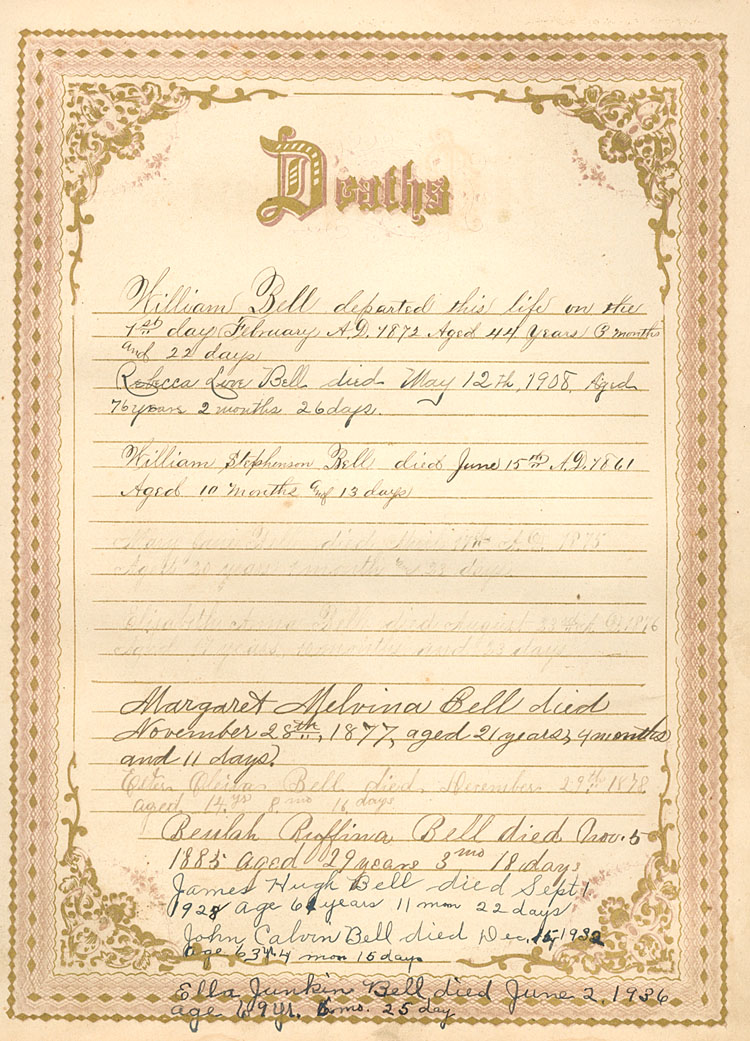 Deaths
William Bell departed this life on the
1st day February A.D. 1872 Aged 44 Years 3 months
and 22 days
Rebecca Love Bell died May 12th, 1908, Aged
76 years 2 months 26 days.
William Stephenson Bell died June 15th A.D. 1861
Aged 10 Months and 13 days
Mary Jane died A.D. 1875
Aged 20 years months & 23 days
Elizabeth Anna Bell died August A.D. 1876
Aged years, months and 23 days
Margaret Melvina Bell died
November 28th, 1877, aged 21 years, 9 months
and 11 days.
Bell died December 29th 1878
aged 14 ys 8 mo 16 days
Beulah Ruffina Bell died Nov. 5
1885 aged 29 years 3 mo 18 days
James Hugh Bell died Sept 1
1928 age years 11 mon 22 days
John Calvin Bell died Dec. 15, 1932
age 63 yr. 4 mon 15 days
Ella Junkin Bell died June 2, 1936
age 69 yr. 6 mo. 25 day